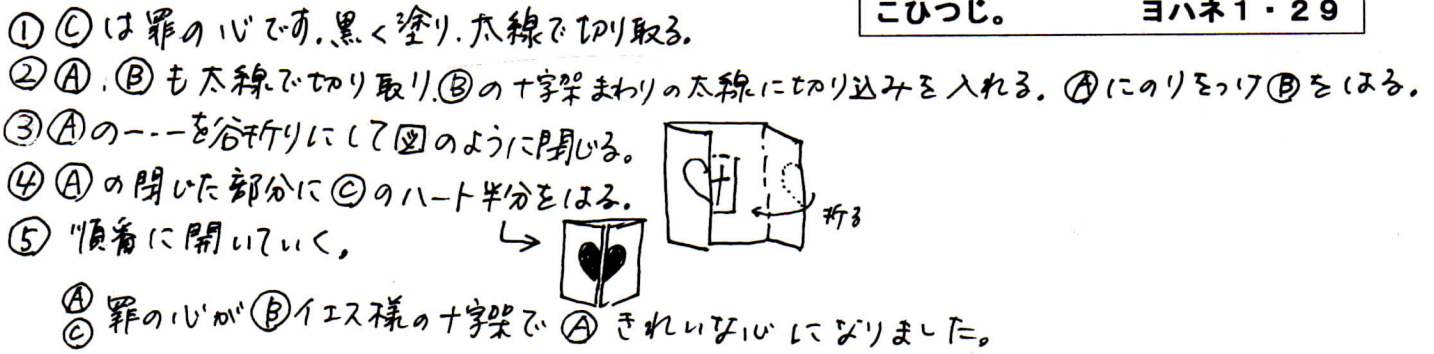 こひつじ。 ヨハネ1・29
①Ⓒは罪の心です。黒く塗り、太線で切り取る。
②Ⓐ、Ⓑも太線で切り取り、Ⓑの十字架まわりの太線に切り込みを入れる。Ⓐにのりをつけⓑをはる。
③Ⓐの-・-・-を谷折りにして図のように閉じる。
④Ⓐの閉じた部分にⒸのハート半分をはる。
折る
⑤順番に開いていく。
ⒶⒸ罪の心がⒷイエス様の十字架でⒶきれいな心になりました。